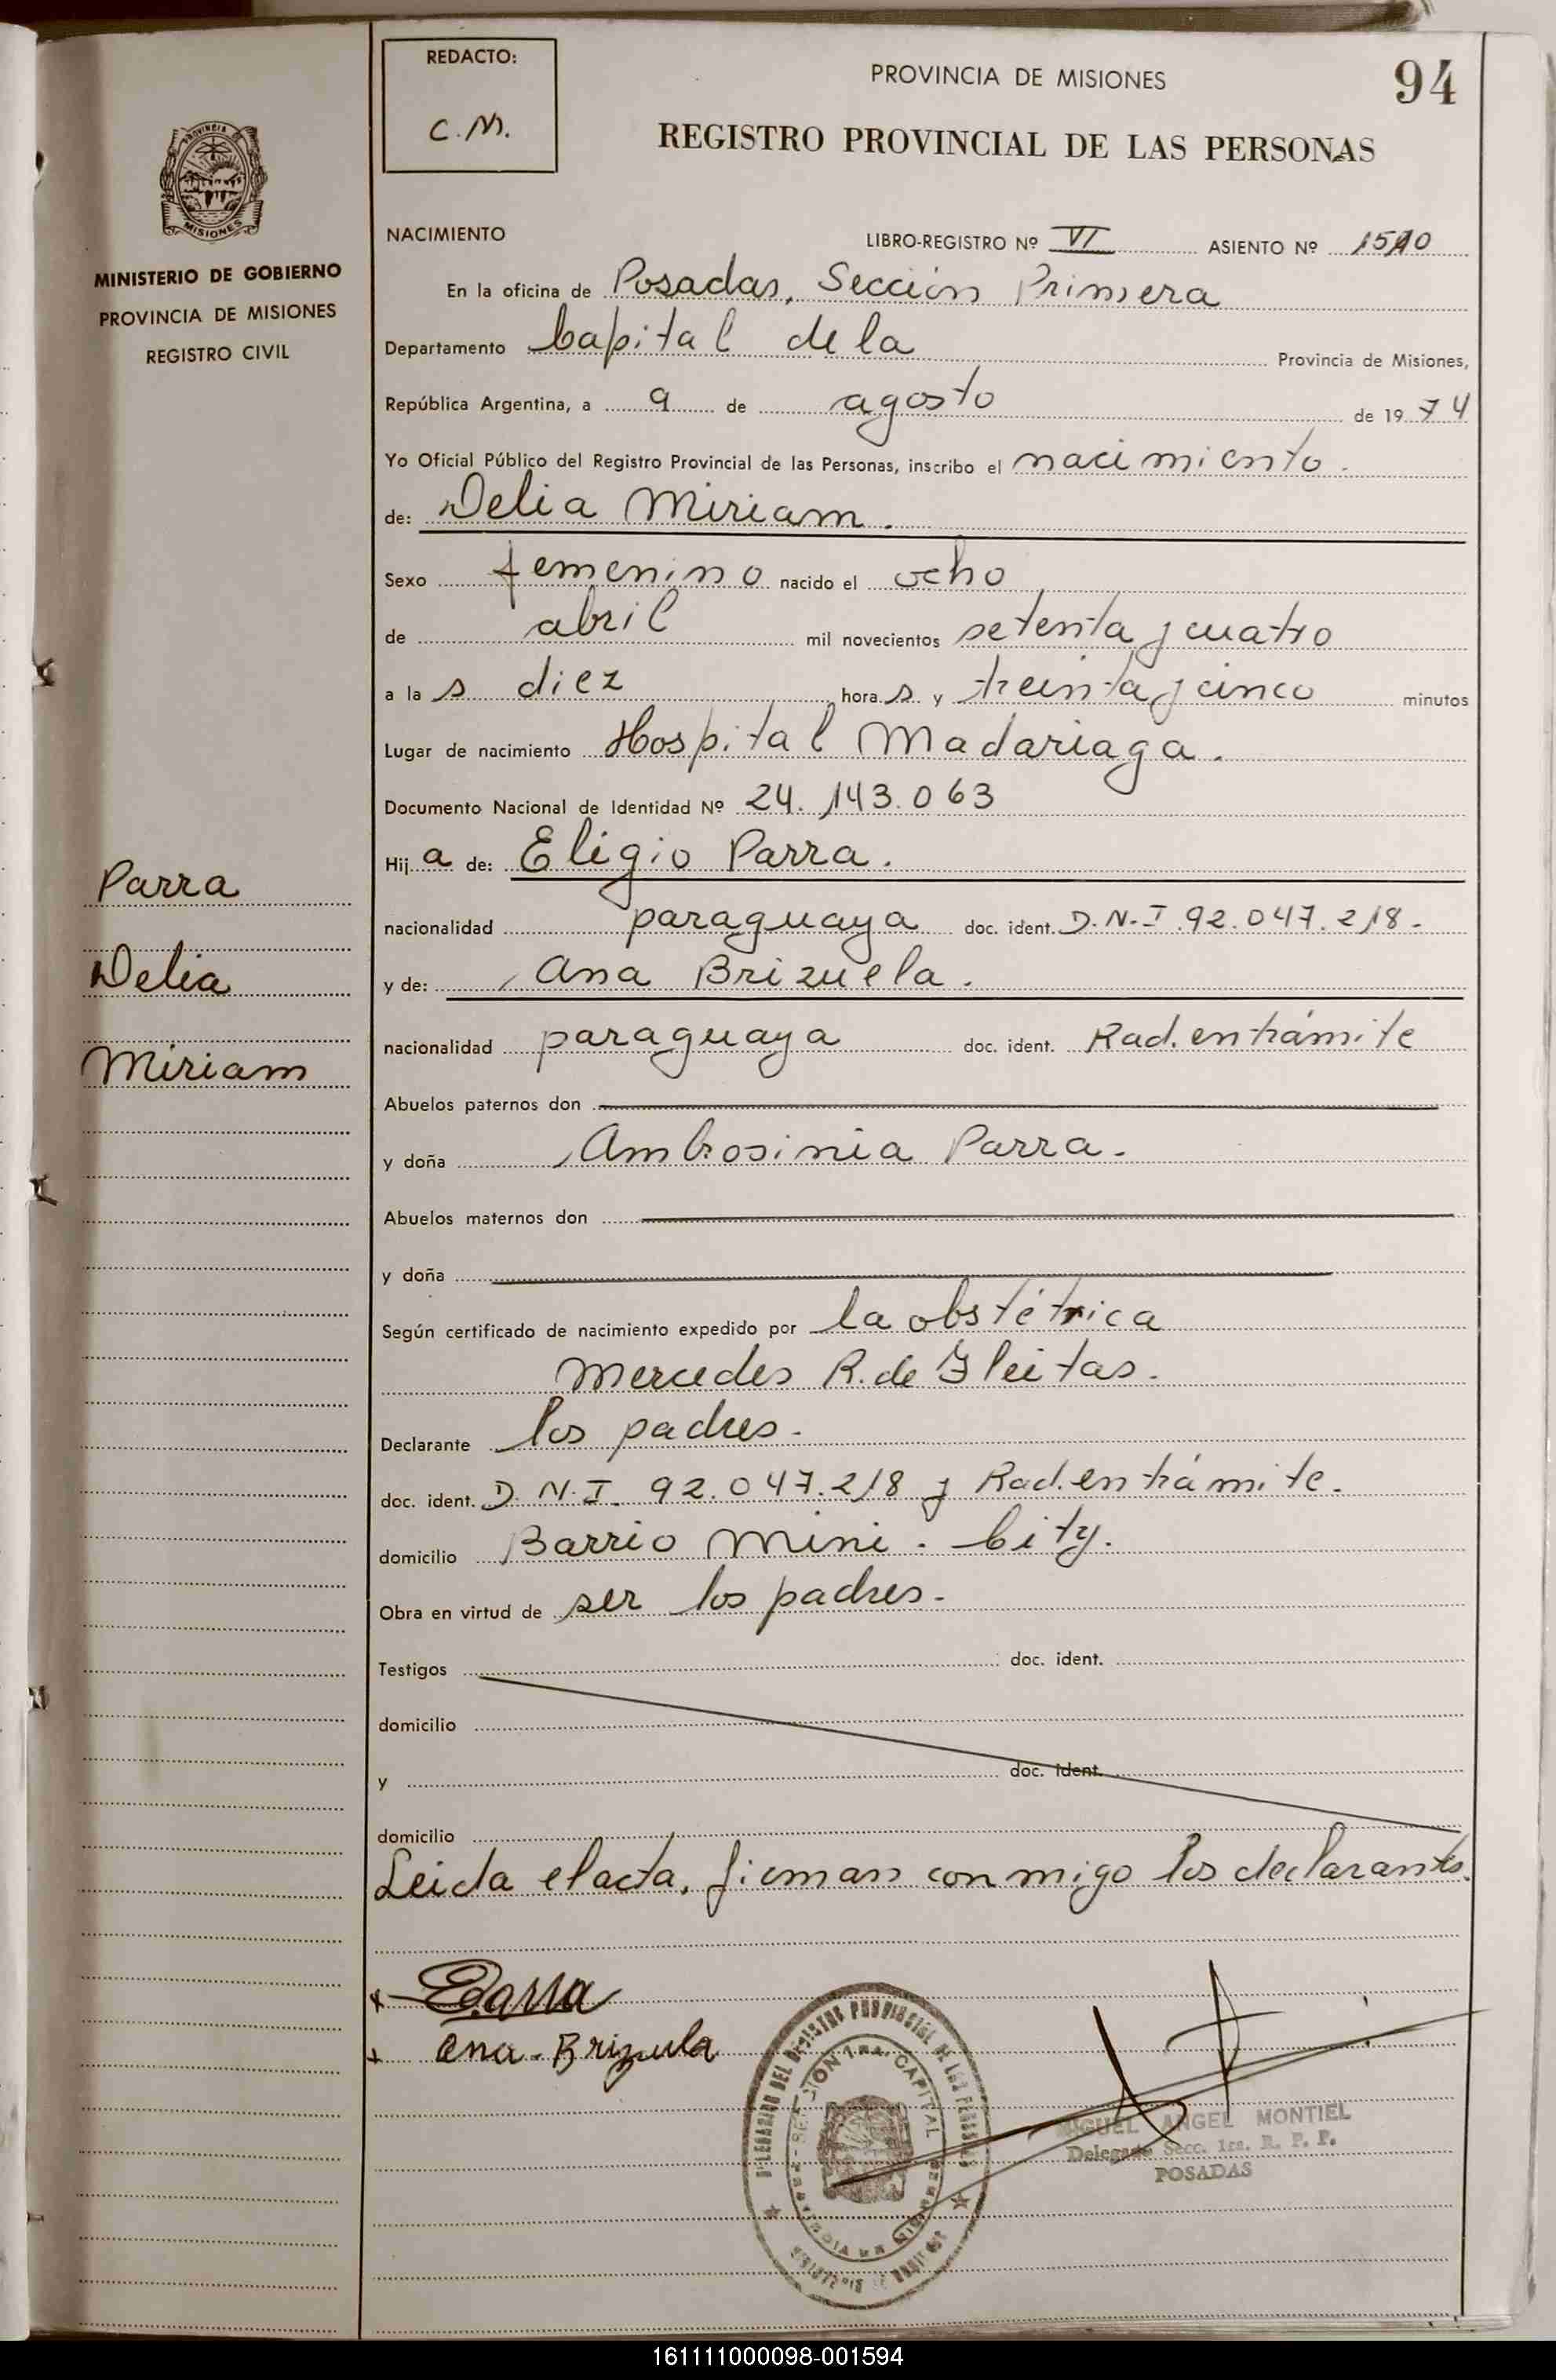 REDACTO:
C.M.
PROVINCIA DE MISIONES
94
REGISTRO PROVINCIAL DE LAS PERSONAS
PROVINCIA DE
MISIONES
MINISTERIO DE GOBIERNO
PROVINCIA DE MISIONES
REGISTRO CIVIL
NACIMIENTO LIBRO-REGISTRO Nº VI ASIENTO Nº 1510
En la oficina de Posadas, Sección Primera
Departamento Capital de la Provincia de Misiones,
República Argentina, a 9 de agosto de 1974
Yo Oficial Público del Registro Provincial de las Personas, inscribo el nacimiento.
de: Delia Miriam.
Sexo femenino nacido el ocho
de abril mil novecientos setenta y cuatro
a las diez horas y treinta y cinco minutos
Lugar de nacimiento Hospital Madariaga.
Documento Nacional de Identidad Nº 24.143.063
Hija de: Eligio Parra.
nacionalidad paraguaya doc. ident. D.N.I. 92.047.218.
y de: Ana Brizuela.
nacionalidad paraguaya doc. ident. Rad. en trámite
Abuelos paternos don
y doña Ambrosinia Parra.
Abuelos maternos don
y doña
Según certificado de nacimiento expedido por la obstétrica
Mercedes R. de Gleitas.
Declarante los padres.
doc. ident. D.N.I. 92.047.218 y Rad. en trámite.
domicilio Barrio Mini-City.
Obra en virtud de ser los padres.
Testigos doc. ident.
domicilio
y doc. ident.
domicilio
Leida el acta, firman conmigo los declarantes.
Parra
Delia
Miriam
x EParra
x Ana. Brizuela
DELEGACION DEL REGISTRO PROVINCIAL DE LAS PERSONAS
SECCION 1ra. CAPITAL
MIGUEL ANGEL MONTIEL
Delegado Secc. 1ra. R. P. P.
POSADAS
161111000098-001594